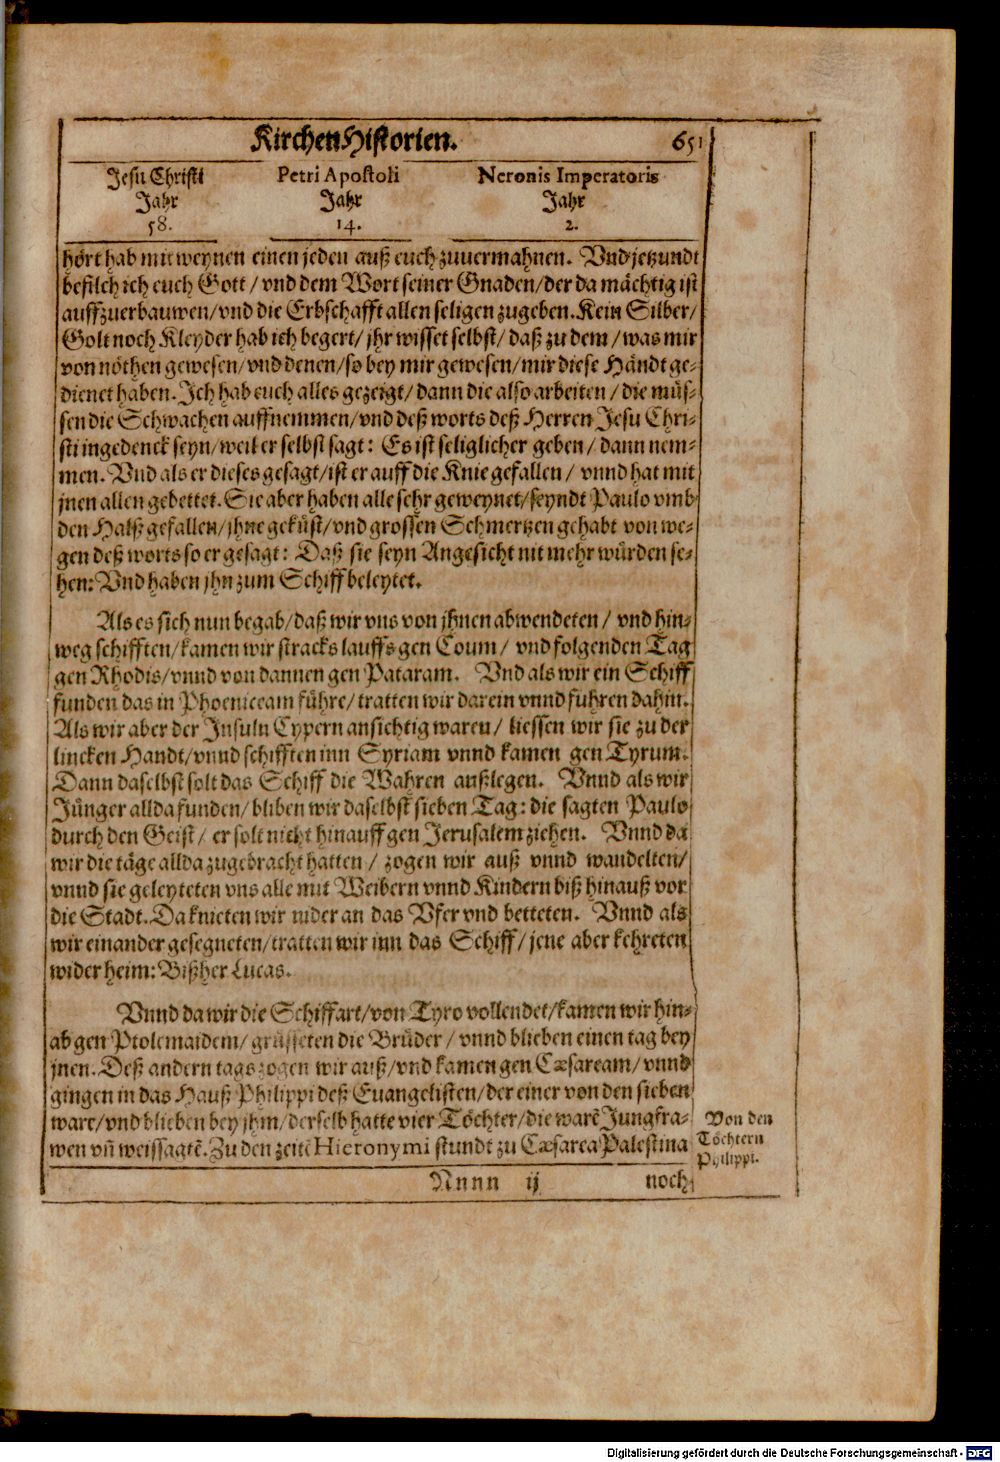 KirchenHistorien. 651
Jesu Christi Petri Apostoli Neronis Imperatoris
Jahr Jahr Jahr
58. 14. 2.
hört hab mit weynen einen jeden auß euch zuuermahnen. Vnd jetzundt
befilch ich euch Gott / vnd dem Wort seiner Gnaden / der da mächtig ist
auffzuerbauwen / vnd die Erbschafft allen seligen zugeben. Kein Silber /
Golt noch Kleyder hab ich begert / jhr wisset selbst / daß zu dem / was mir
von nöthen gewesen / vnd denen / so bey mir gewesen / mir diese Händt ge-
dienet haben. Ich hab euch alles gezeigt / dann die also arbeiten / die müs-
sen die Schwachen auffnemmen / vnd deß worts deß Herren Jesu Chri-
sti ingedenck seyn / weil er selbst sagt: Es ist seliglicher geben / dann nem-
men. Vnd als er dieses gesagt / ist er auff die Knie gefallen / vnnd hat mit
jnen allen gebettet. Sie aber haben alle sehr geweynet / seyndt Paulo vmb
den Halß gefallen / jhne geküst / vnd grossen Schmertzen gehabt von we-
gen deß worts so er gesagt: Daß sie seyn Angesicht nit mehr würden se-
hen: Vnd haben jhn zum Schiff beleytet.
Als es sich nun begab / daß wir vns von jhnen abwendeten / vnd hin-
weg schifften / kamen wir stracks lauffs gen Coum / vnd folgenden Tag
gen Rhodis / vnnd von dannen gen Pataram. Vnd als wir ein Schiff
funden das in Phoeniceam führe / tratten wir darein vnnd fuhren dahin.
Als wir aber der Insuln Cypern ansichtig waren / liessen wir sie zu der
lincken Handt / vnnd schifften inn Syriam vnnd kamen gen Tyrum.
Dann daselbst solt das Schiff die Wahren außlegen. Vnnd als wir
Jünger allda funden / bliben wir daselbst sieben Tag: die sagten Paulo
durch den Geist / er solt nicht hinauff gen Jerusalem ziehen. Vnnd da
wir die täge allda zugebracht hatten / zogen wir auß vnnd wandelten /
vnnd sie geleyteten vns alle mit Weibern vnnd Kindern biß hinauß vor
die Stadt. Da knieten wir nider an das Vfer vnd betteten. Vnnd als
wir einander gesegneten / tratten wir inn das Schiff / jene aber kehreten
wider heim: Bißher Lucas.
Vnnd da wir die Schiffart / von Tyro vollendet / kamen wir hin-
ab gen Ptolemaidem / grüsseten die Brüder / vnnd blieben einen tag bey
jnen. Deß andern tags zogen wir auß / vnd kamen gen Cæsaream / vnnd
gingen in das Hauß Philippi deß Euangelisten / der einer von den sieben
ware / vnd blieben bey jhm / derselb hatte vier Töchter / die warē Jungfra-
wen vñ weissagtē. Zu den zeitē Hieronymi stundt zu Cæsarea Palestina
Von den
Töchtern
Philippi.
Nnnn ij noch
Digitalisierung gefördert durch die Deutsche Forschungsgemeinschaft - DFG